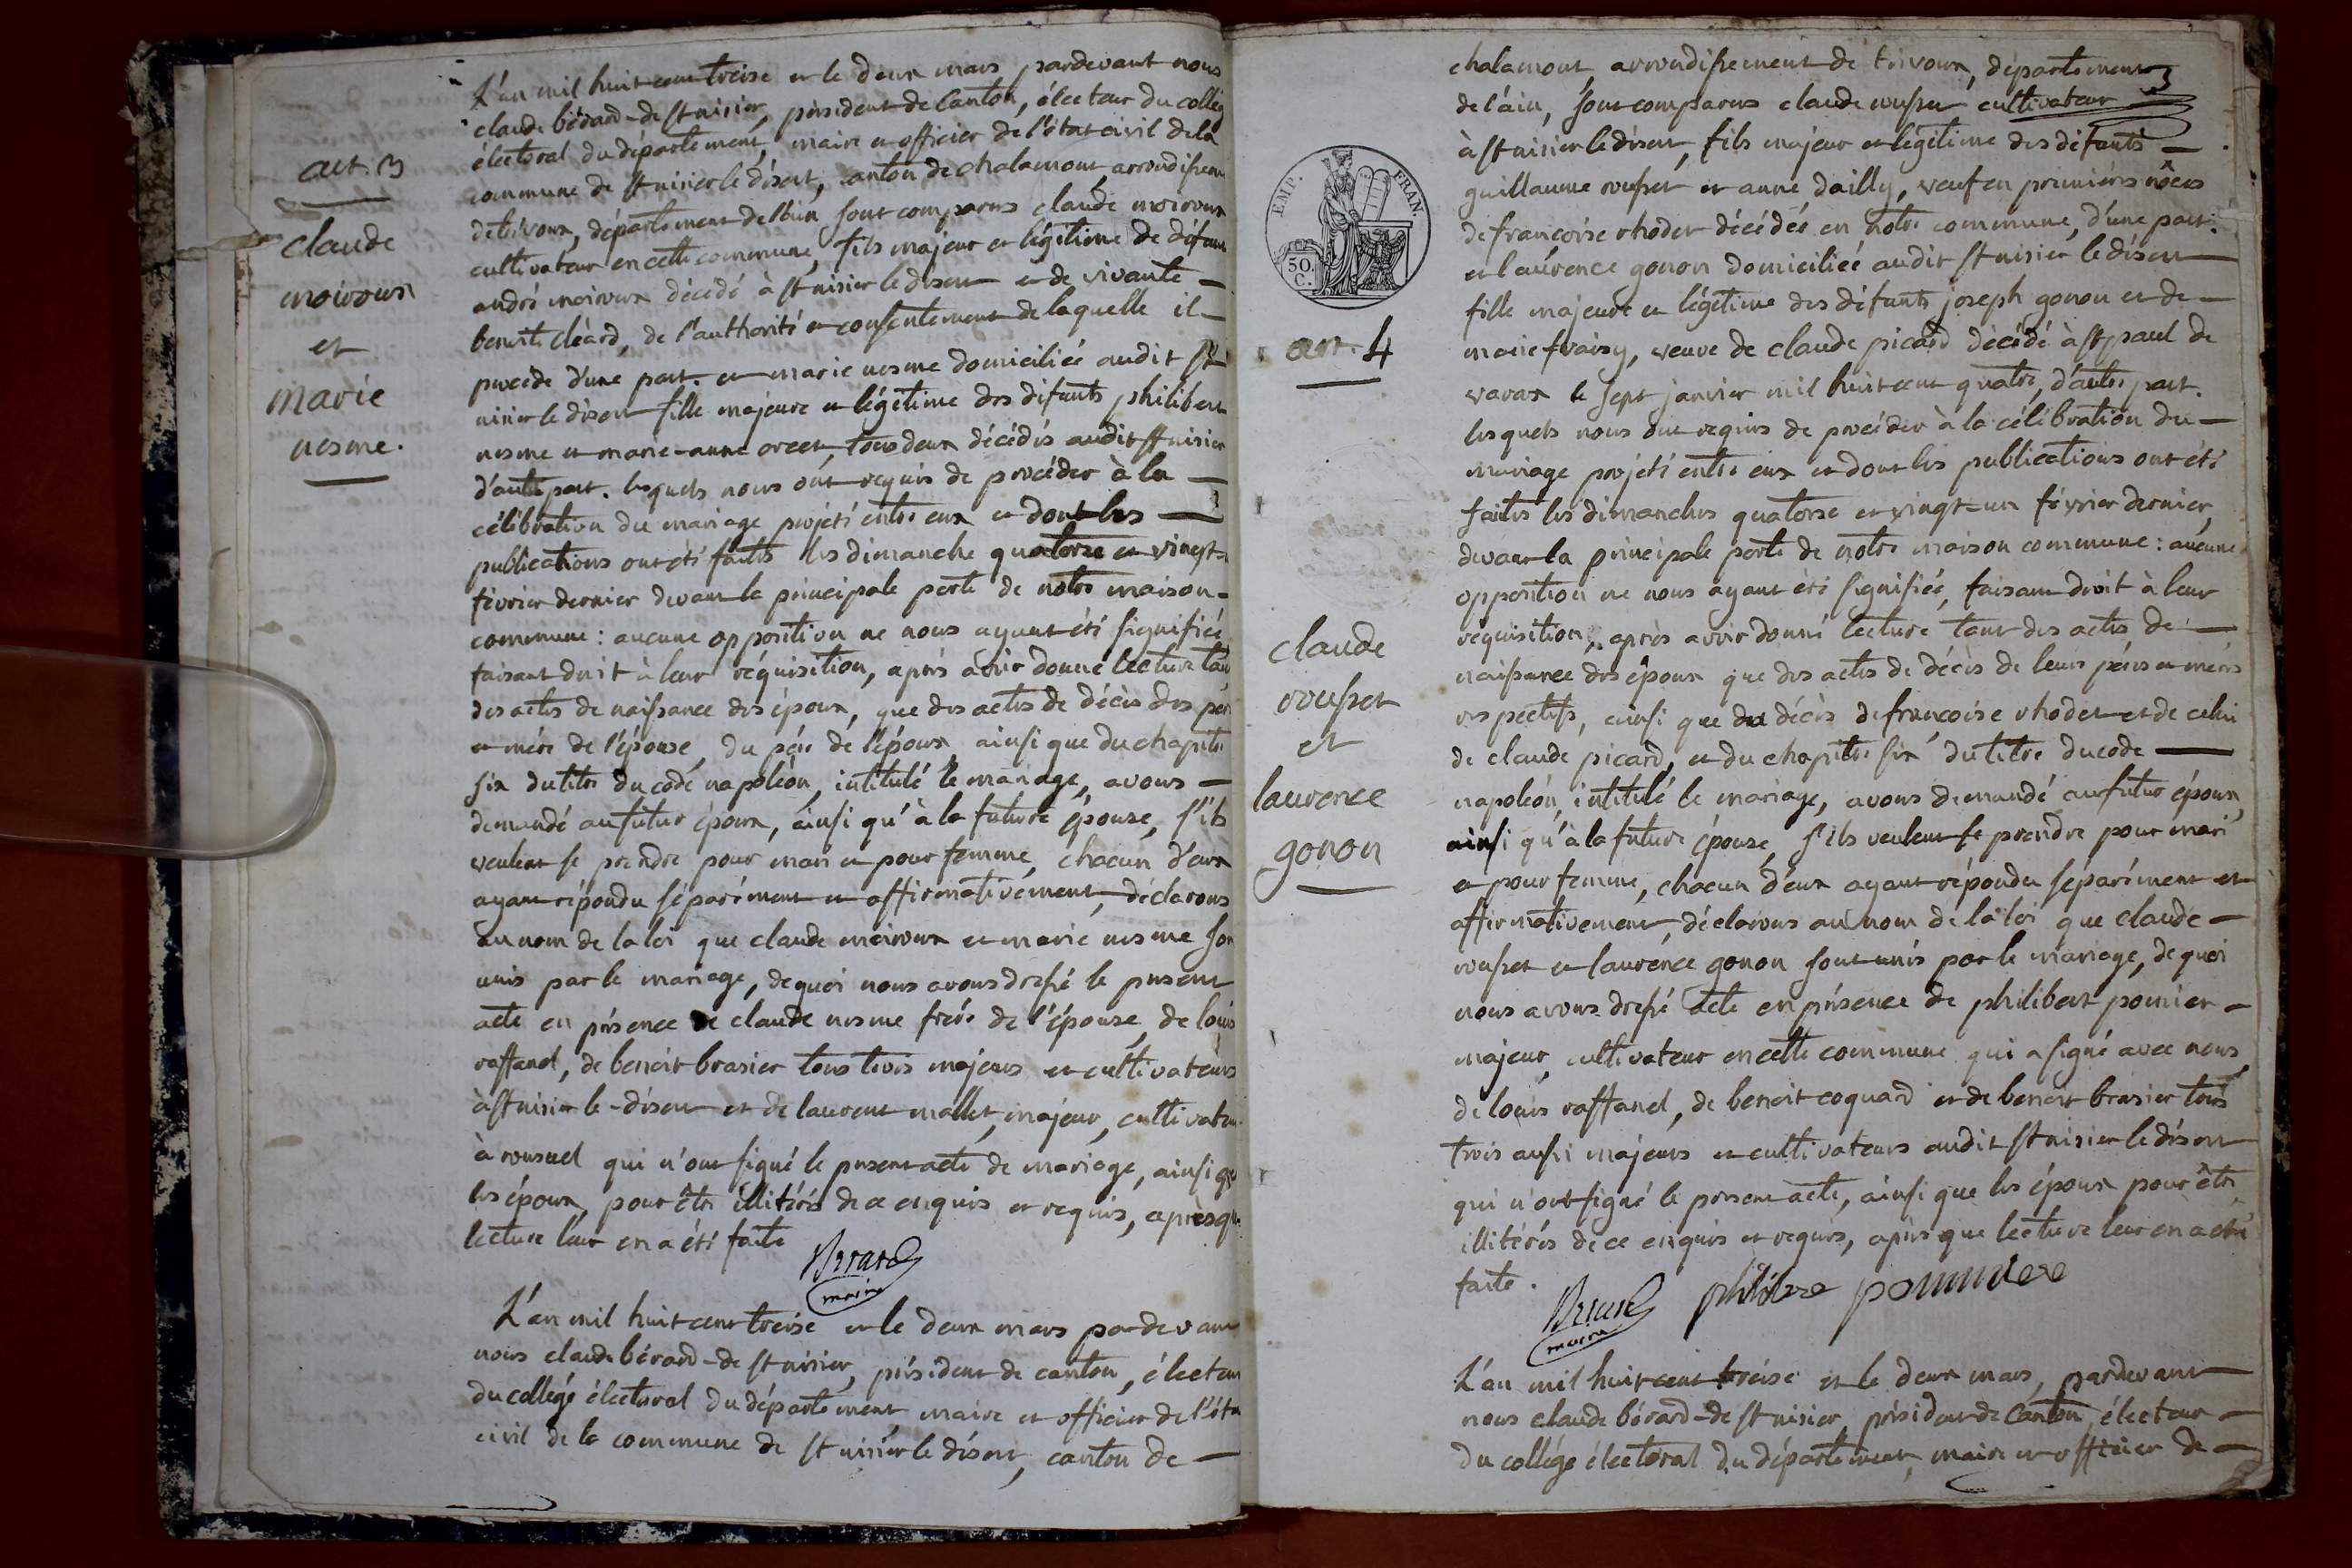 L'an mil huit cent treise et le deux mars pardevant nous
claude bérard-de st nisier, président de canton, électeur du collég
électoral du département, maire et officier de l'état civil de la
commune de st nisier le désert, canton de chalamont, arrondissem
de trévoux, département de l'ain sont comparus claude moiroux
cultivateur en cette commune, fils majeur et légitime de défunt
andré moiroux décédé à st nisier le désert et de vivante
benoite cléard, de l'authorité et consentement de laquelle il
procède d'une part. et marie nesme domiciliée audit st
nisier le désert fille majeure et légitime des défunts philibert
nesme et marie-anne orcet, tous deux décédés audit st nisier
d'autre part. lesquels nous ont requis de procéder à la
célébration du mariage projeté entre eux et dont les
publications ont été faites les dimanche quatorse et vingt-
février dernier devant la principale porte de notre maison-
commune : aucune opposition ne nous ayant été signifiée,
faisant droit à leur réquisition, après avoir donné lecture tan
des actes de naissance des époux, que des actes de décès des père
et mère de l'épouse, du père de l'époux, ainsi que du chapitre
six du titre du code napoléon, intitulé le mariage, avons
demandé au futur époux, ainsi qu'à la future épouse, s'ils
veulent se prendre pour mari et pour femme, chacun d'eux
ayant répondu séparément et affirmativement, déclarons
au nom de la loi que claude moiroux et marie nesme son
unis par le mariage, de quoi nous avons dressé le présent
acte en présence de claude nesme frère de l'épouse, de louis
raffanel, de benoit brasier tous trois majeurs et cultivateurs
à st nisier le-désert et de laurent mallet, majeur, cultivateu
à ronsuel qui n'ont signé le présent acte de mariage, ainsi que
les époux, pour être illitérés de ce enquis et requis, après que
lecture leur en a été faite
Bérard
maire
L'an mil huit cent treise et le deux mars pardevant
nous claude bérard-de st nisier, président de canton, électeur
du collége électoral du département, maire et officier de l'éta
civil de la commune de st nisier le désert, canton de
art. 3
claude
moiroux
et
marie
nesme.
chalamont, arrondissement de trévoux, département
de l'ain, sont comparus claude rousset cultivateur
à st nisier le désert, fils majeur et légitime des défunts
guillaume rousset et anne dailly, veuf en premières nôces
de francoise rhodet décédée en notre commune, d'une part.
et laurence gonon domiciliée audit st nisier le désert
fille majeure et légitime des défunts joseph gonon et de
marie fraisy, veuve de claude picard décédé à st paul de
varax le sept janvier mil huit cent quatre, d'autre part.
lesquels nous ont requis de procéder à la célébration du
mariage projeté entre eux et dont les publications ont été
faites les dimanches quatorse et vingt-un février dernier,
devant la principale porte de notre maison commune : aucune
opposition ne nous ayant été signifiée, faisant droit à leur
réquisition, après avoir donné lecture tant des actes de
naissance des époux que des actes de décès de leurs pères et mères
respectifs, ainsi que du décès de francoise rhodet et de celui
de claude picard, et du chapitre six du titre du code
napoléon, intitulé le mariage, avons demandé au futur époux,
ainsi qu'à la future épouse, s'ils veulent se prendre pour mari
et pour femme, chacun d'eux ayant répondu séparément et
affirmativement, déclarons au nom de la loi que claude
rousset et laurence gonon sont unis par le mariage, de quoi
nous avons dressé acte en présence de philibert pomier
majeur, cultivateur en cette commune qui a signé avec nous,
de louis raffanel, de benoit coquard et de benoit brasier tous
trois aussi majeurs et cultivateurs audit st nisier le désert
qui n'ont signé le présent acte, ainsi que les époux pour être
illitérés de ce enquis et requis, après que lecture leur en a été
faite.
Bérard
maire
L'an mil huit cent treise et le deux mars, pardevant
nous claude bérard-de st nisier, président de canton, électeur
du collége électoral du département, maire et officier de
EMP. FRAN.
50.
C.
art. 4
claude
rousset
et
laurence
gonon